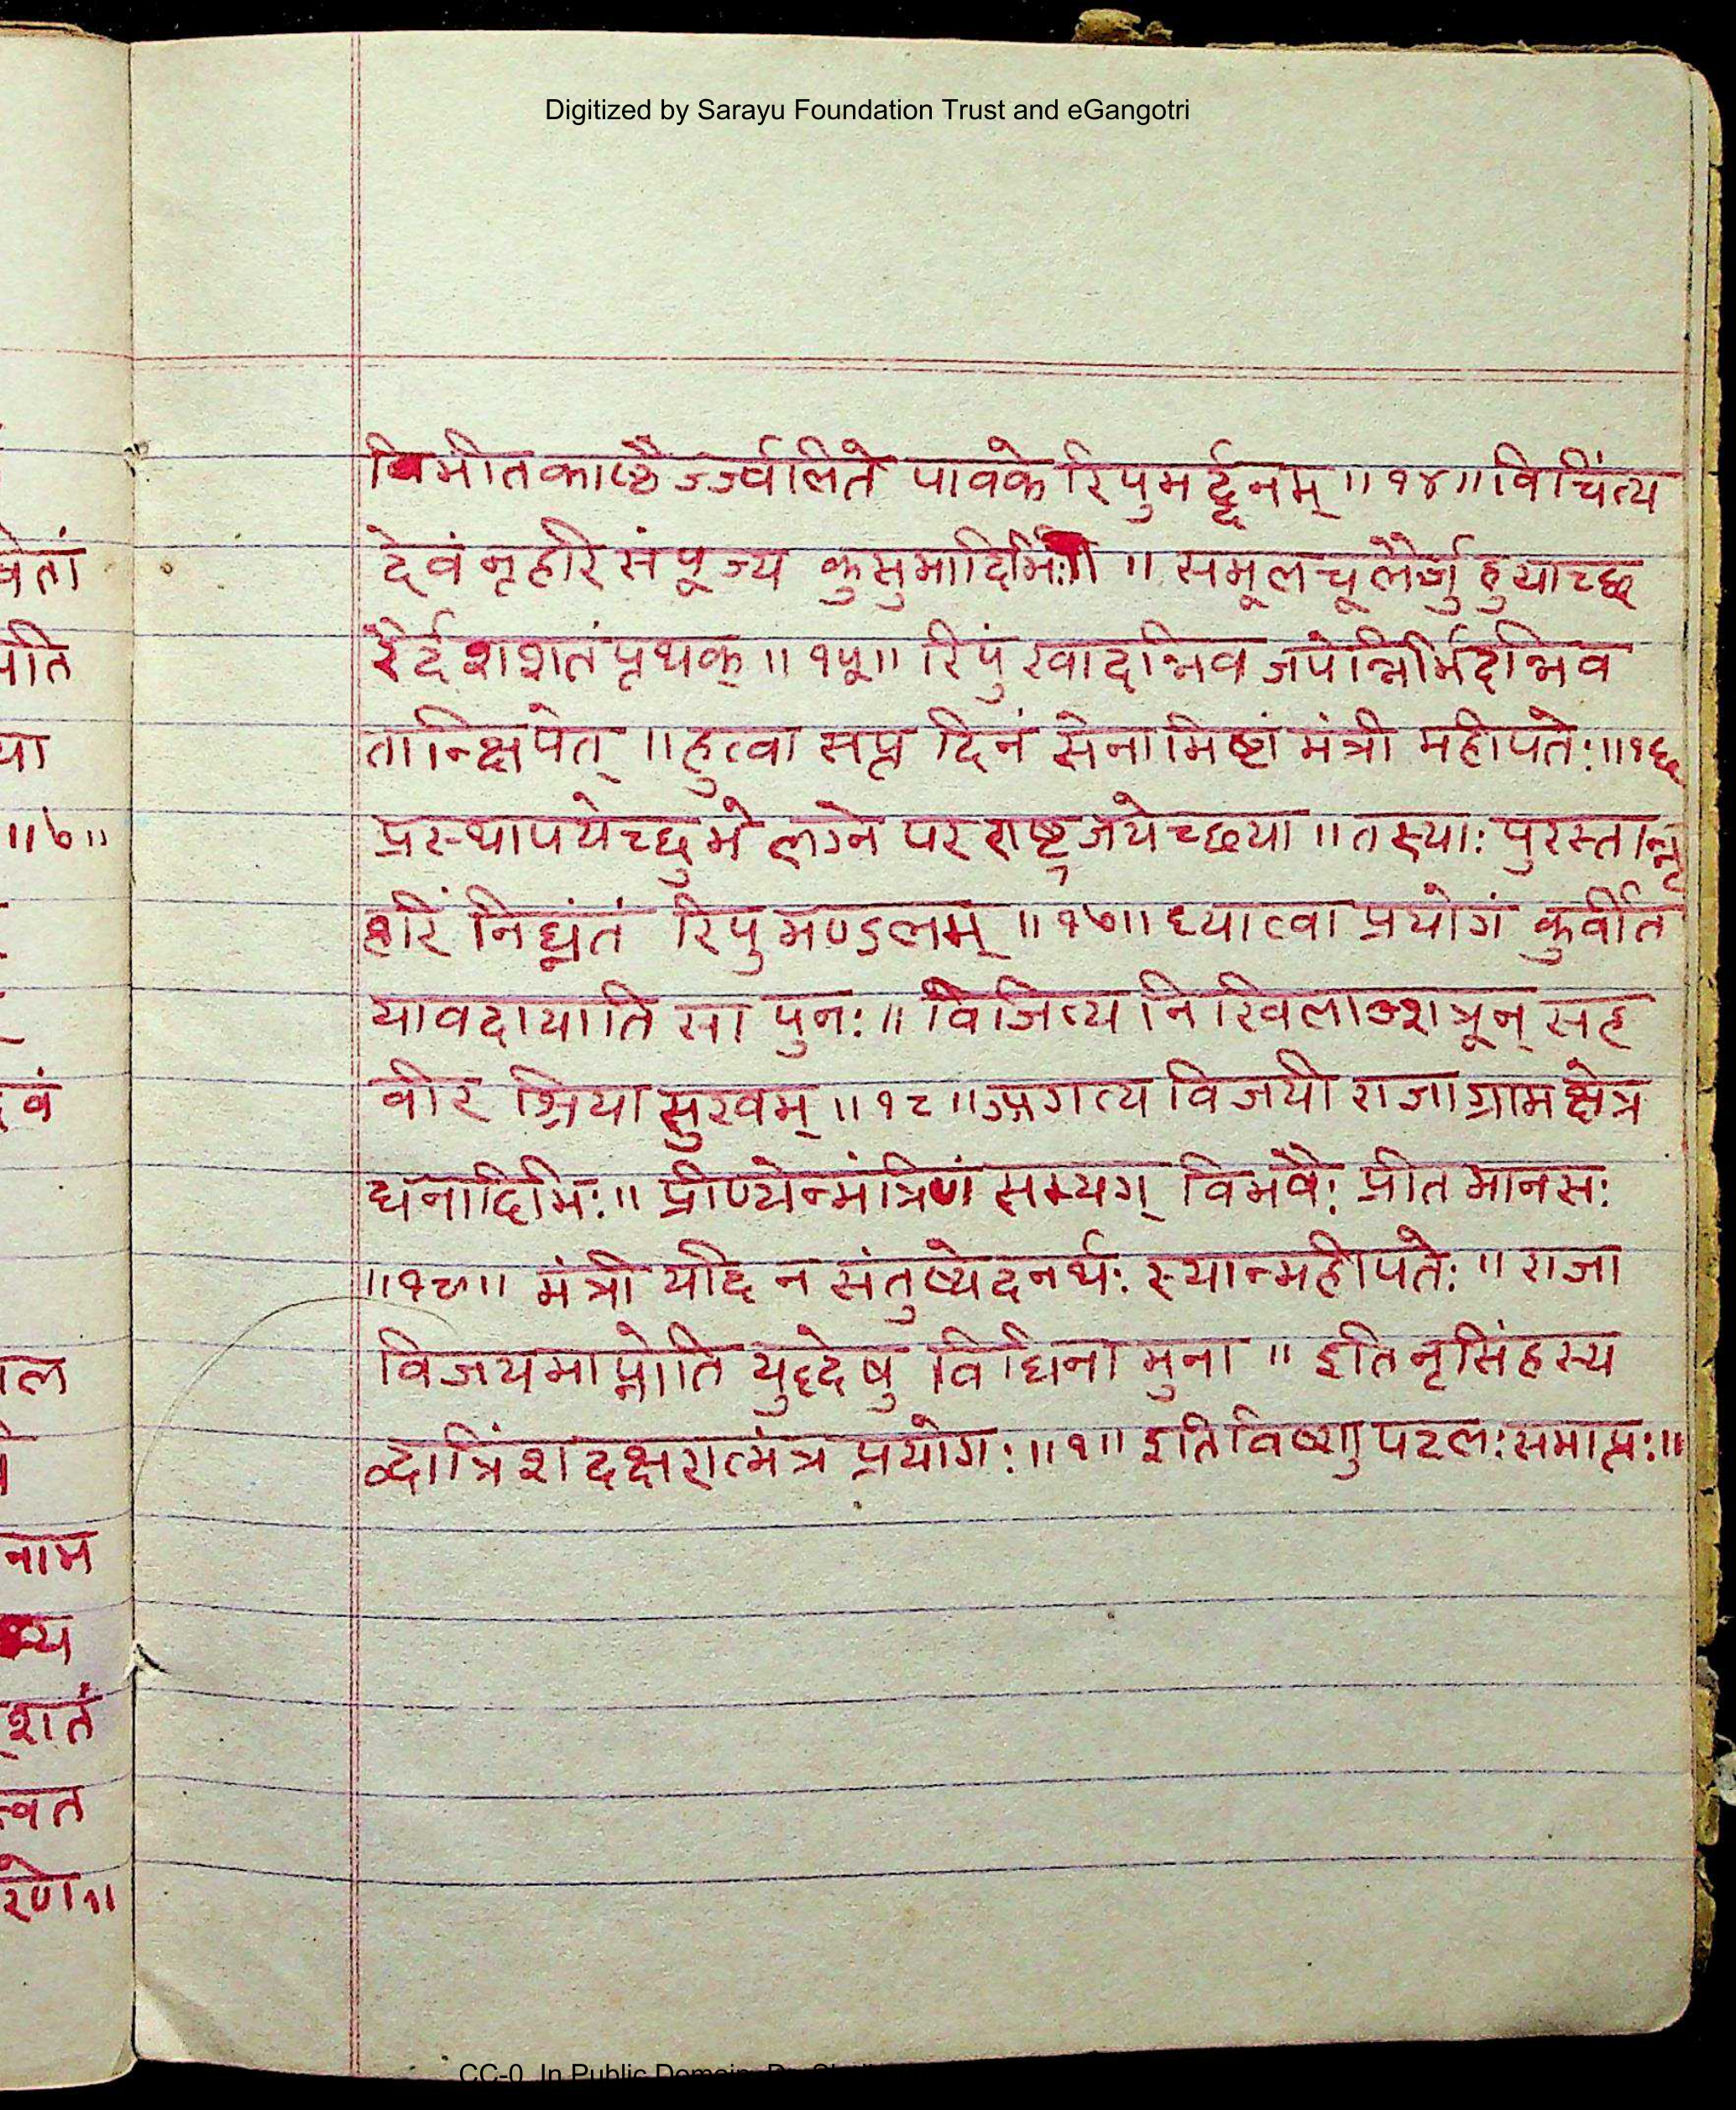 Digitized by Sarayu Foundation Trust and eGangotri
विभीतकाष्ठैर्ज्ज्वलिते पावके रिपुमर्द्दनम् ॥१४॥ विचिंत्य
देवं नृहरिं संपूज्य कुसुमादिभिः ॥ समूलचूलैर्जुहुयाच्छ
रैर्दशशतं पृथक् ॥१५॥ रिपुं खादन्निव जपेन्निर्भिदन्निव
तान्क्षिपेत् ॥ हुत्वा सप्त दिनं सेनामिष्टां मंत्री महीपतेः ॥१६
प्रस्थापयेच्छुभे लग्ने परराष्ट्रजयेच्छया ॥ तस्याः पुरस्तान्नृ
हरिं निघ्नंतं रिपुमण्डलम् ॥१७॥ ध्यात्वा प्रयोगं कुर्वीत
यावदायाति सा पुनः ॥ विजित्य निखिलाञ्शत्रून् सह
वीर श्रिया सुखम् ॥१८॥ आगत्य विजयी राजा ग्राम क्षेत्र
धनादिभिः ॥ प्रीणयेन्मंत्रिणं सम्यग् विभवैः प्रीत मानसः
॥१९॥ मंत्री यदि न संतुष्येदनर्थः स्यान्महीपतेः ॥ राजा
विजयमाप्नोति युद्धेषु विधिना मुना ॥ इति नृसिंहस्य
द्वात्रिंशदक्षरात्मंत्र प्रयोगः ॥१॥ इति विष्णु पटलः समाप्तः ॥
वेतां
पति
या
॥७॥
वं
ल
नाम
व्य
शतं
वत
रणे॥
CC-0. In Public Domain.